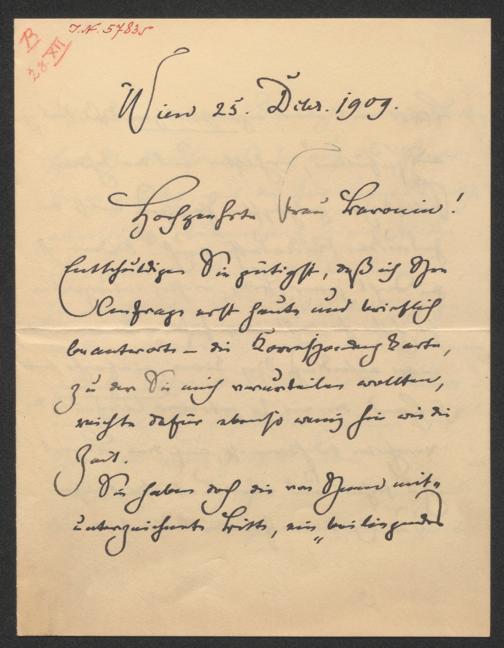 J.N. 57835
B
28. XII
Wien 25. Dcbr. 1909.
Hochgeehrte Frau Baronin!
Entschuldigen Sie gütigst, daß ich Ihre
Anfrage erst heute und brieflich
beantworte – die Korrespondenzkarte,
zu der Sie mich verurteilen wollten,
reichte dafür ebenso wenig hin wie die
Zeit.
Sie haben doch die von Ihnen mit-
unterzeichnete Bitte, ein „beiliegendes